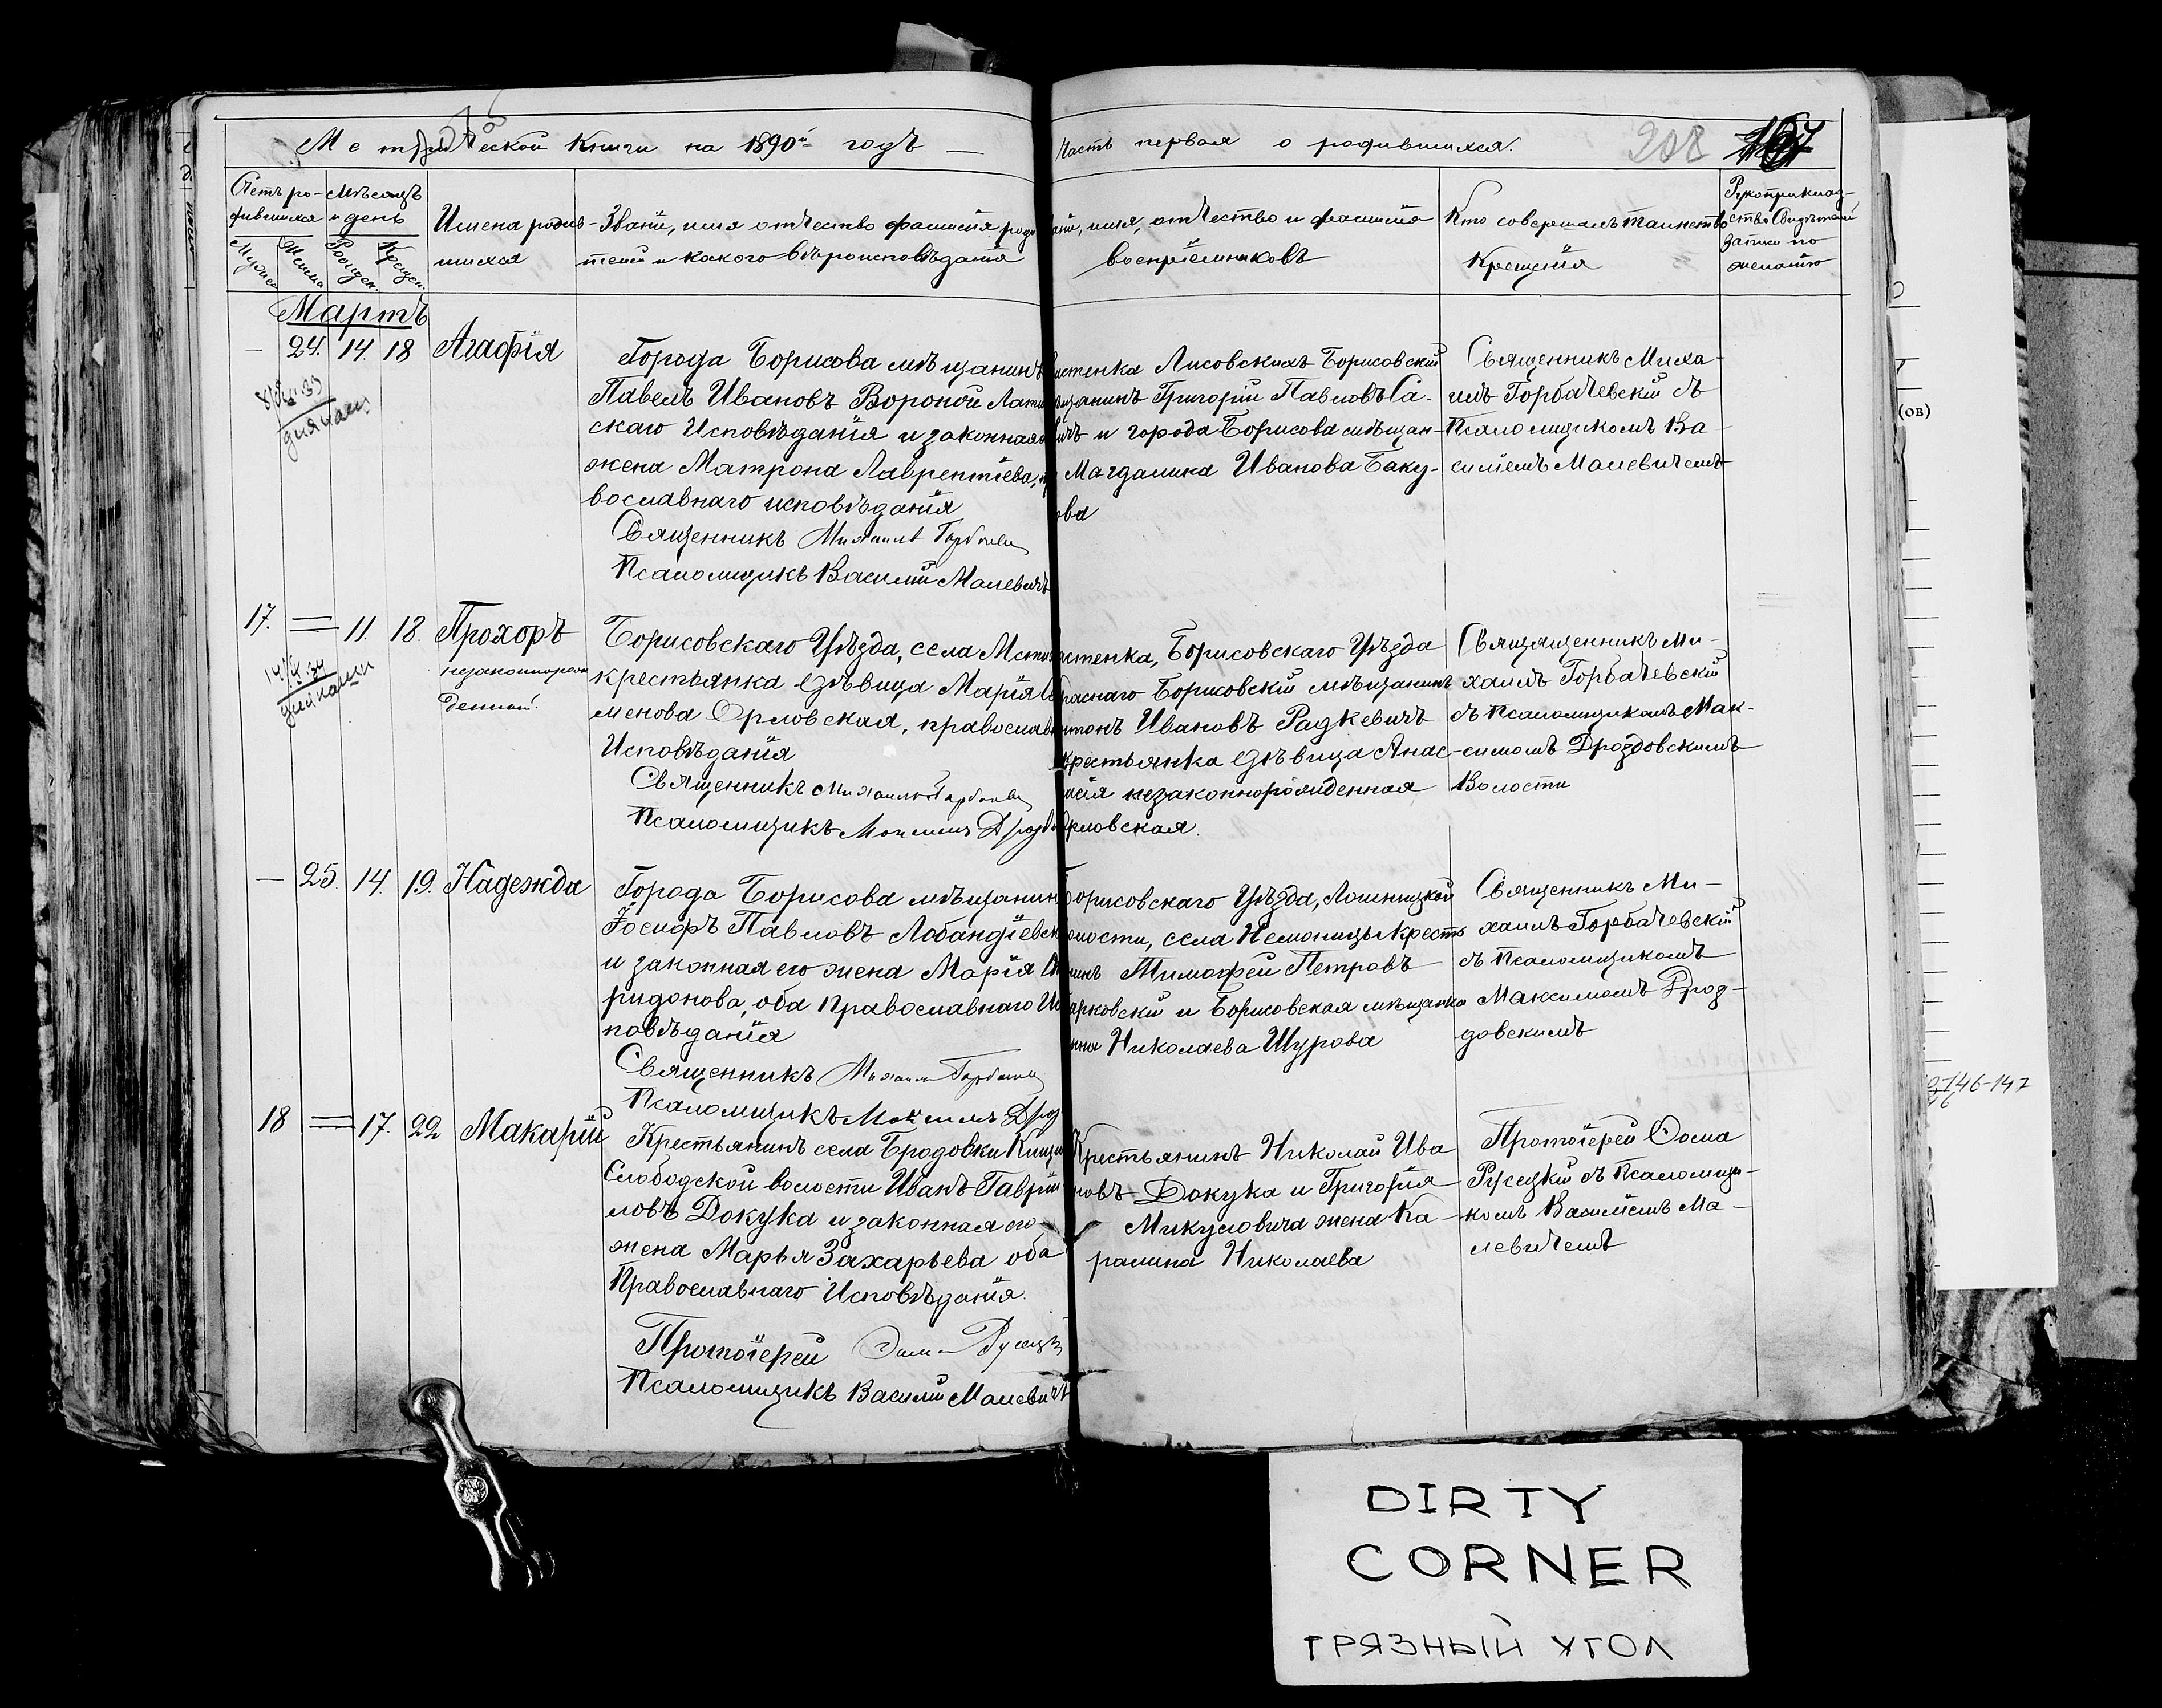 Метрической книги на 1890й годъ
Часть первая о родившихся.
208
Счетъ ро-
дившихся
Мѣсяцъ
и день
Мужес
Женса
Рожден.
Крещен.
Имена родив-
шихся
Званіе, имя отчество фамилія роди
телей и какого вѣроисповѣданія
аніе, имя, отчество и фамилія
воспріемниковъ
Кто совершалъ таинство
Крещенія
Рукоприклад-
ство свидѣтелей
записи по
желанію
Мартъ
— 24. 14. 18 Агафія
Города Борисова мѣщанинъ
Павелъ Ивановъ Вороной Лати
скаго Исповѣданія и законная
жена Матрона Лаврентіева,
вославнаго исповѣданія
Священникъ Михаилъ Горбачев
Псаломщикъ Василій Малевичъ
стенка Лисовскихъ Борисовскій
щанинъ Григорій Павловъ Са-
ичъ и города Борисова мѣщан-
Магдалина Иванова Баку-
ова
Священникъ Миха-
илъ Горбачевскій съ
Псаломщикомъ Ва-
силіемъ Малевичемъ
17. = 11. 18. Прохоръ
незаконнорож
денный.
Борисовскаго Уѣзда, села Мсти
крестьянка дѣвица Марія Се
менова Орловская, православ
Исповѣданія
Священникъ Михаилъ Горбачев
Псаломщикъ Максимъ Дроздо
стенка, Борисовскаго Уѣзда
раснаго Борисовскій мѣщанинъ
нтонъ Ивановъ Радкевичъ
крестьянка дѣвица Анас-
асія незаконнорожденная
Орловская.
Свящященникъ Ми-
хаилъ Горбачевскій
съ псаломщикомъ Мак-
симомъ Дроздовскимъ
Волости
— 25. 14. 19. Надежда
Города Борисова мѣщанин
Іосифъ Павловъ Лобандіевск
и законная его жена Марія Сп
ридонова, оба Православнаго Ис
повѣданія
Священникъ Михаилъ Горбачев
Псаломщикъ Максимъ Дрозд
Борисовскаго Уѣзда, Лошницкой
олости, села Немоницы кресть
нинъ Тимофей Петровъ
арковскій и Борисовская мѣщанка
нна Николаева Шурова
Священникъ Ми-
хаилъ Горбачевскій
съ псаломщикомъ
Максимомъ Дрод-
довскимъ
18 = 17. 22 Макарій
Крестьянинъ села Бродовки Кищи
Слободской волости Иванъ Гаврии
ловъ Докука и законная его
жена Марья Захарьева оба
Православнаго Исповѣданія.
Протоіерей Фома Русецк
Псаломщикъ Василій Малевичъ
Крестьянинъ Николай Ива
новъ Докука и Григорія
Микуловича жена Ка-
ралина Николаева
Протоіерей Ѳома
Русецкій съ псаломщи-
комъ Василіемъ Ма-
левичемъ
(ов)
146-147
DIRTY
CORNER
ГРЯЗНЫЙ УГОЛ